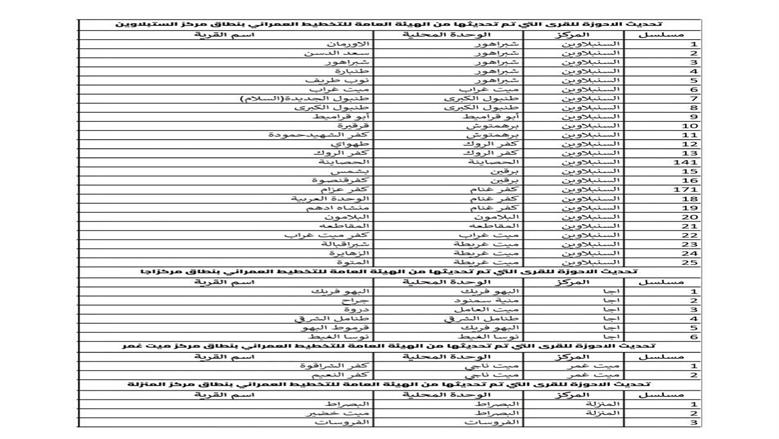 تحديث الاحوزة للقرى التي تم تحديثها من الهيئة العامة للتخطيط العمراني بنطاق مركز السنبلاوين
مسلسل المركز الوحدة المحلية اسم القرية
1 السنبلاوين شبراهور الاورمان
2 السنبلاوين شبراهور سعد الدسن
3 السنبلاوين شبراهور شبراهور
4 السنبلاوين شبراهور طنبارة
5 السنبلاوين شبراهور نوب طريف
6 السنبلاوين ميت غراب ميت غراب
7 السنبلاوين طنبول الكبرى طنبول الجديدة(السلام)
8 السنبلاوين طنبول الكبرى طنبول الكبرى
9 السنبلاوين أبو قراميط أبو قراميط
10 السنبلاوين برهمتوش قرقيرة
11 السنبلاوين برهمتوش كفر الشهيدحمودة
12 السنبلاوين كفر الروك طهواي
13 السنبلاوين كفر الروك كفر الروك
141 السنبلاوين الحصاينة الحصاينة
15 السنبلاوين برقين بشمس
16 السنبلاوين برقين كفرقنصوة
171 السنبلاوين كفر غنام كفر عزام
18 السنبلاوين كفر غنام الوحدة العربية
19 السنبلاوين كفر غنام منشاه ادهم
20 السنبلاوين البلامون البلامون
21 السنبلاوين المقاطعه المقاطعه
22 السنبلاوين ميت غراب كفر ميت غراب
23 السنبلاوين ميت غريطة شبراقبالة
24 السنبلاوين ميت غريطة الزهايرة
25 السنبلاوين ميت غريطة المتوة
تحديث الاحوزة للقرى التي تم تحديثها من الهيئة العامة للتخطيط العمراني بنطاق مركزاجا
مسلسل المركز الوحدة المحلية اسم القرية
1 اجا البهو فريك البهو فريك
2 اجا منية سمنود جراح
3 اجا ميت العامل دروة
4 اجا طنامل الشرقي طنامل الشرقي
5 اجا البهو فريك قرموط البهو
6 اجا نوسا الغيط نوسا الغيط
تحديث الاحوزة للقرى التي تم تحديثها من الهيئة العامة للتخطيط العمراني بنطاق مركز ميت غمر
مسلسل المركز الوحدة المحلية اسم القرية
1 ميت غمر ميت ناجي كفر الشراقوة
2 ميت غمر ميت ناجي كفر النعيم
تحديث الاحوزة للقرى التي تم تحديثها من الهيئة العامة للتخطيط العمراني بنطاق مركز المنزلة
مسلسل المركز الوحدة المحلية اسم القرية
1 المنزلة البصراط البصراط
2 المنزلة البصراط ميت خضير
3 الفروسات الفروسات